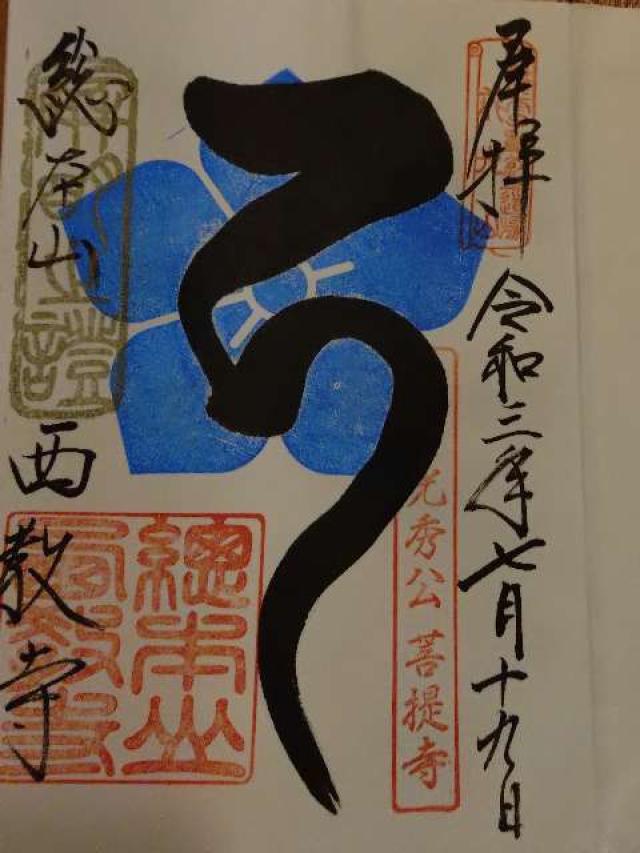 奉拝
令和三年七月十九日
光秀公菩提寺
総本山
西教寺
總本山
西教寺